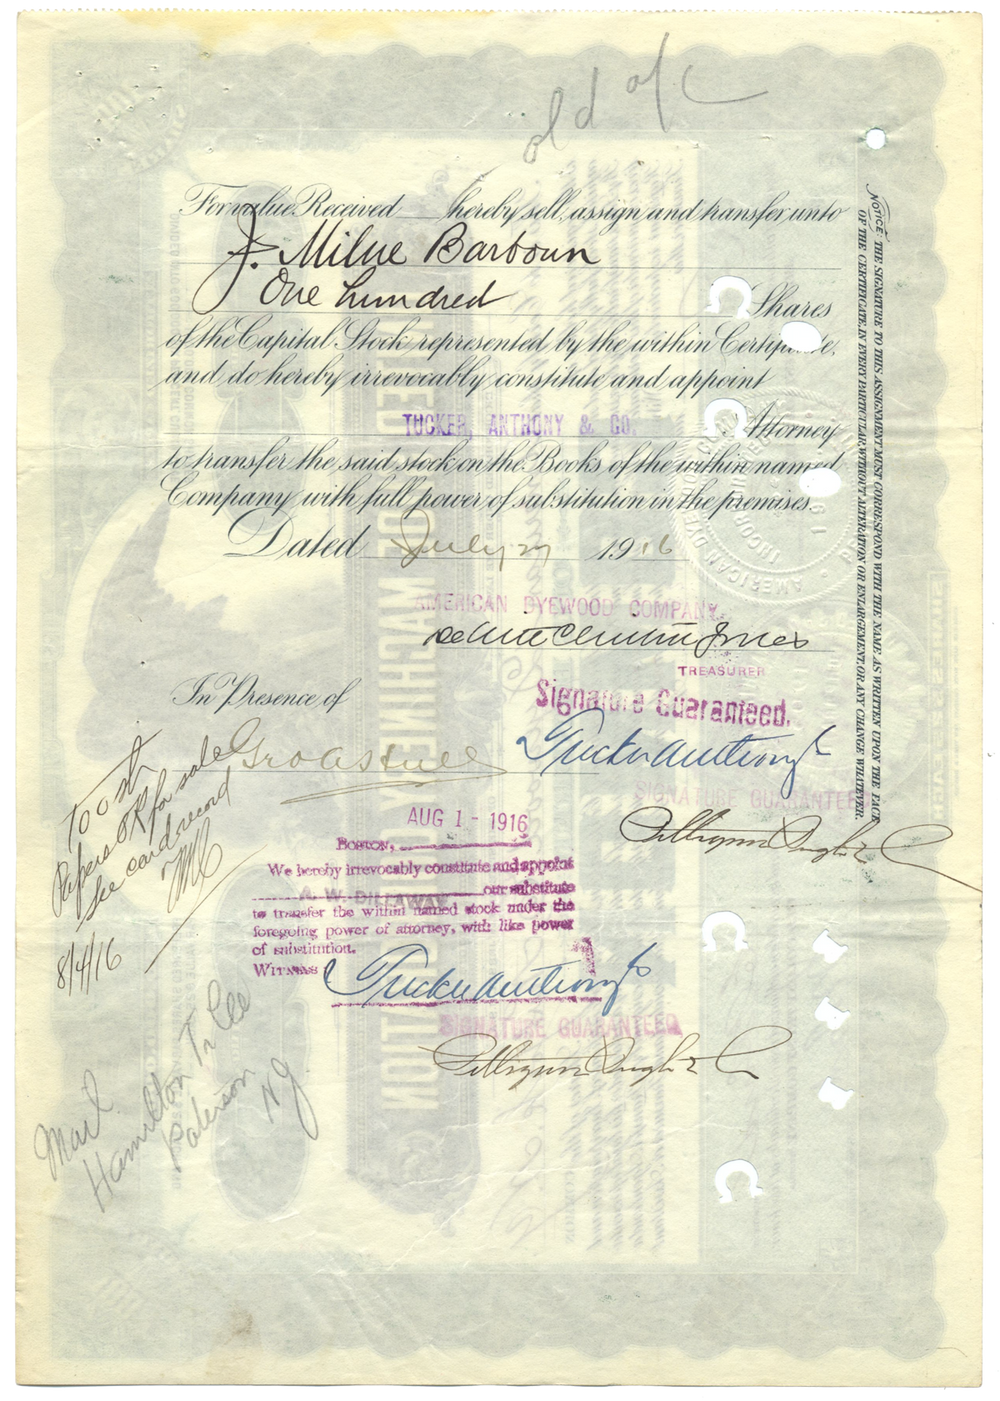 old a/c
For value Received hereby sell, assign and transfer, unto
J. Milne Barboun
One hundred Shares
of the Capital Stock represented by the within Certificate,
and do hereby irrevocably constitute and appoint
TUCKER, ANTHONY & CO. Attorney
to transfer the said stock on the Books of the within named
Company with full power of substitution in the premises.
Dated July 27 1916
AMERICAN DYEWOOD COMPANY.
TREASURER
In Presence of
Signature Guaranteed.
Tucker Anthony & Co
SIGNATURE GUARANTEED
100 sh
Papers OK for sale
See card record
8/4/16
AUG 1 - 1916
BOSTON,
We hereby irrevocably constitute and appoint
A. W. DILLAWAY our substitute
to transfer the within named stock under the
foregoing power of attorney, with like power
of substitution.
WITNESS
Tucker Anthony & Co
SIGNATURE GUARANTEED
Mail
Hamilton Tr Co
Paterson
NJ
NOTICE: THE SIGNATURE TO THIS ASSIGNMENT MUST CORRESPOND WITH THE NAME AS WRITTEN UPON THE FACE
OF THE CERTIFICATE, IN EVERY PARTICULAR, WITHOUT ALTERATION OR ENLARGEMENT, OR ANY CHANGE WHATEVER.